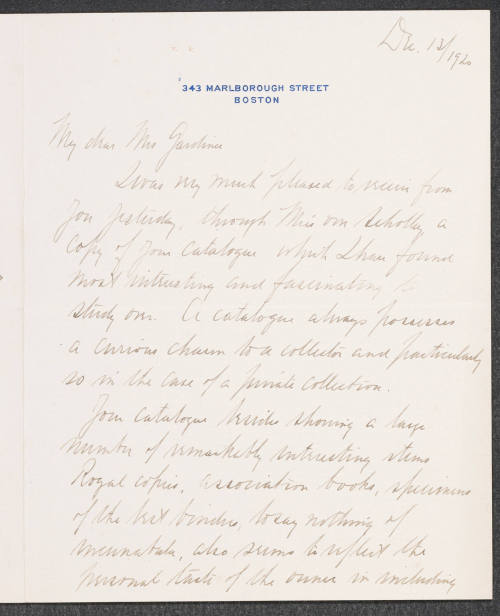 Dec. 13/1920
343 MARLBOROUGH STREET
BOSTON
My dear Mrs Gardiner
I was very much pleased to receive from
you yesterday, through Miss von Scholley a
copy of your catalogue which I have found
most interesting and fascinating to
study over. A catalogue always possesses
a curious charm to a collector and particularly
so in the case of a private collection.
Your catalogue besides showing a large
number of remarkably interesting items
Royal copies, association books, specimens
of the best binders, to say nothing of
incunabula, also seems to reflect the
personal taste of the owner in including